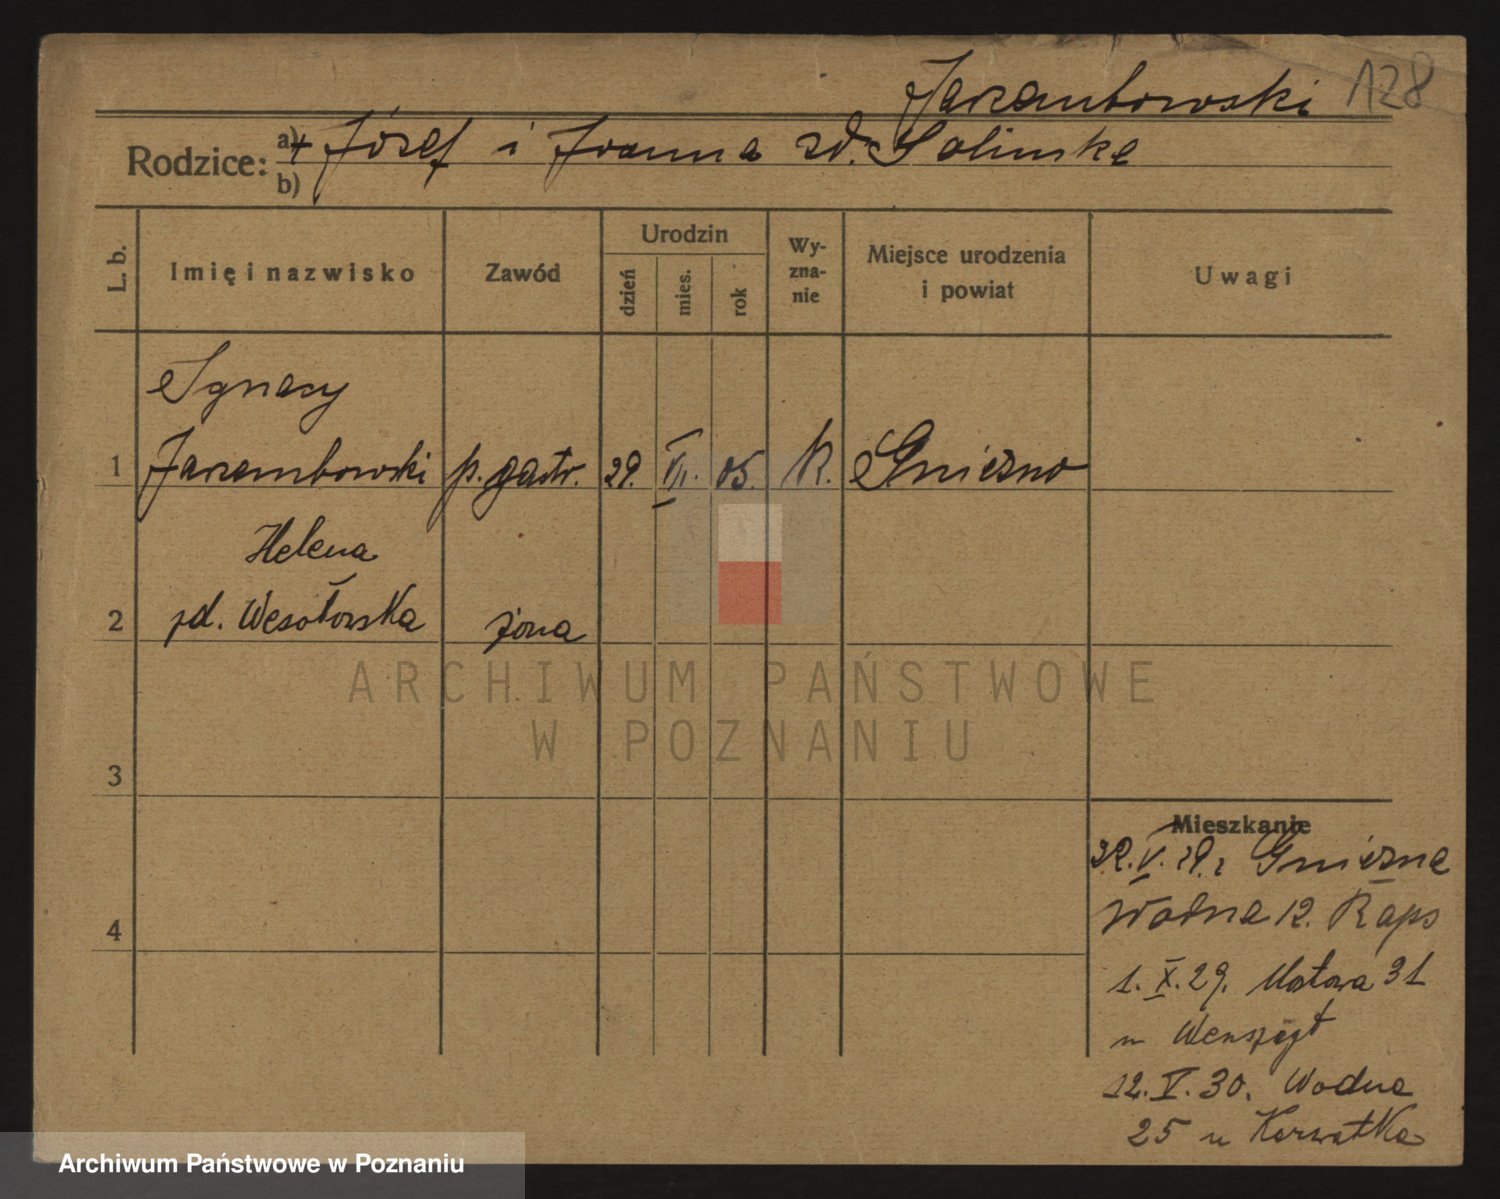 Jarzembowski 128
Rodzice: a) + Józef i Joanna zd. Solinska
b)
L. b. Imię i nazwisko Zawód Urodzin dzień mies. rok Wy-zna-nie Miejsce urodzenia i powiat Uwagi
Ignacy
1 Jarzembowski p. gastr. 29. VII. 05. K. Gniezno
Helena
2 zd. Wesołowska żona
ARCHIWUM PAŃSTWOWE
W POZNANIU
3
Mieszkanie
22. V. 29. z Gniezna
4 Wodna 12. Raps
1. X. 29. Mostowa 31
u
12. V. 30. Wodna
25 u Korwatka
Archiwum Państwowe w Poznaniu